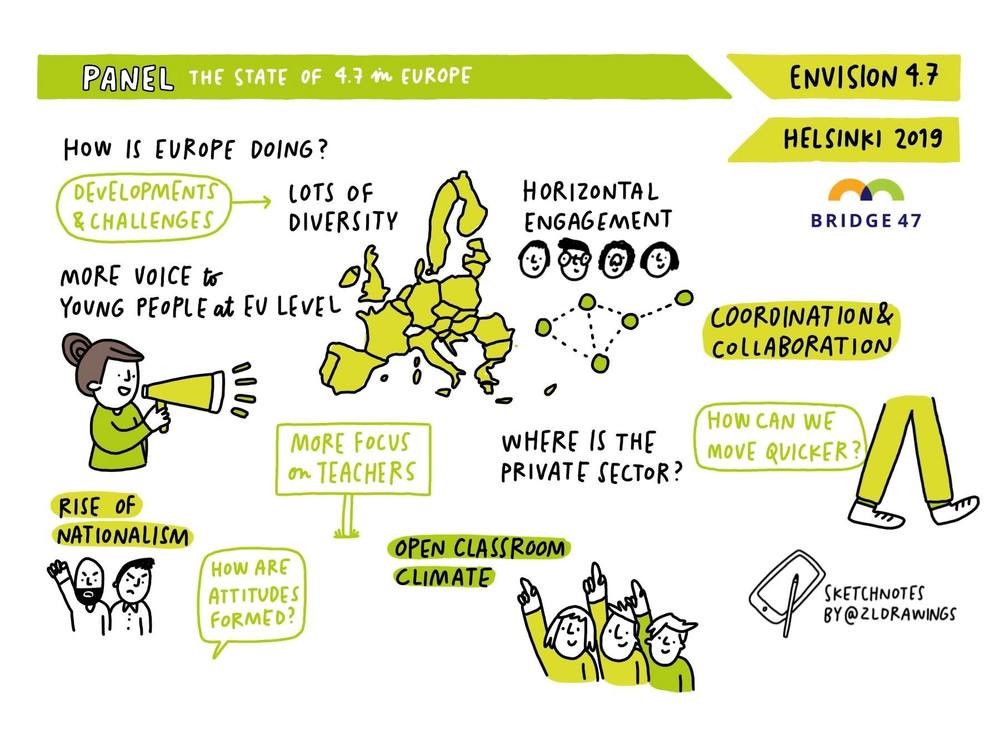 PANEL THE STATE OF 4.7 in EUROPE
ENVISION 4.7
HELSINKI 2019
BRIDGE 47
HOW IS EUROPE DOING?
DEVELOPMENTS
& CHALLENGES
LOTS OF
DIVERSITY
HORIZONTAL
ENGAGEMENT
MORE VOICE to
YOUNG PEOPLE at EU LEVEL
COORDINATION &
COLLABORATION
MORE FOCUS
on TEACHERS
WHERE IS THE
PRIVATE SECTOR?
HOW CAN WE
MOVE QUICKER?
RISE OF
NATIONALISM
HOW ARE
ATTITUDES
FORMED?
OPEN CLASSROOM
CLIMATE
SKETCHNOTES
BY @ZLDRAWINGS